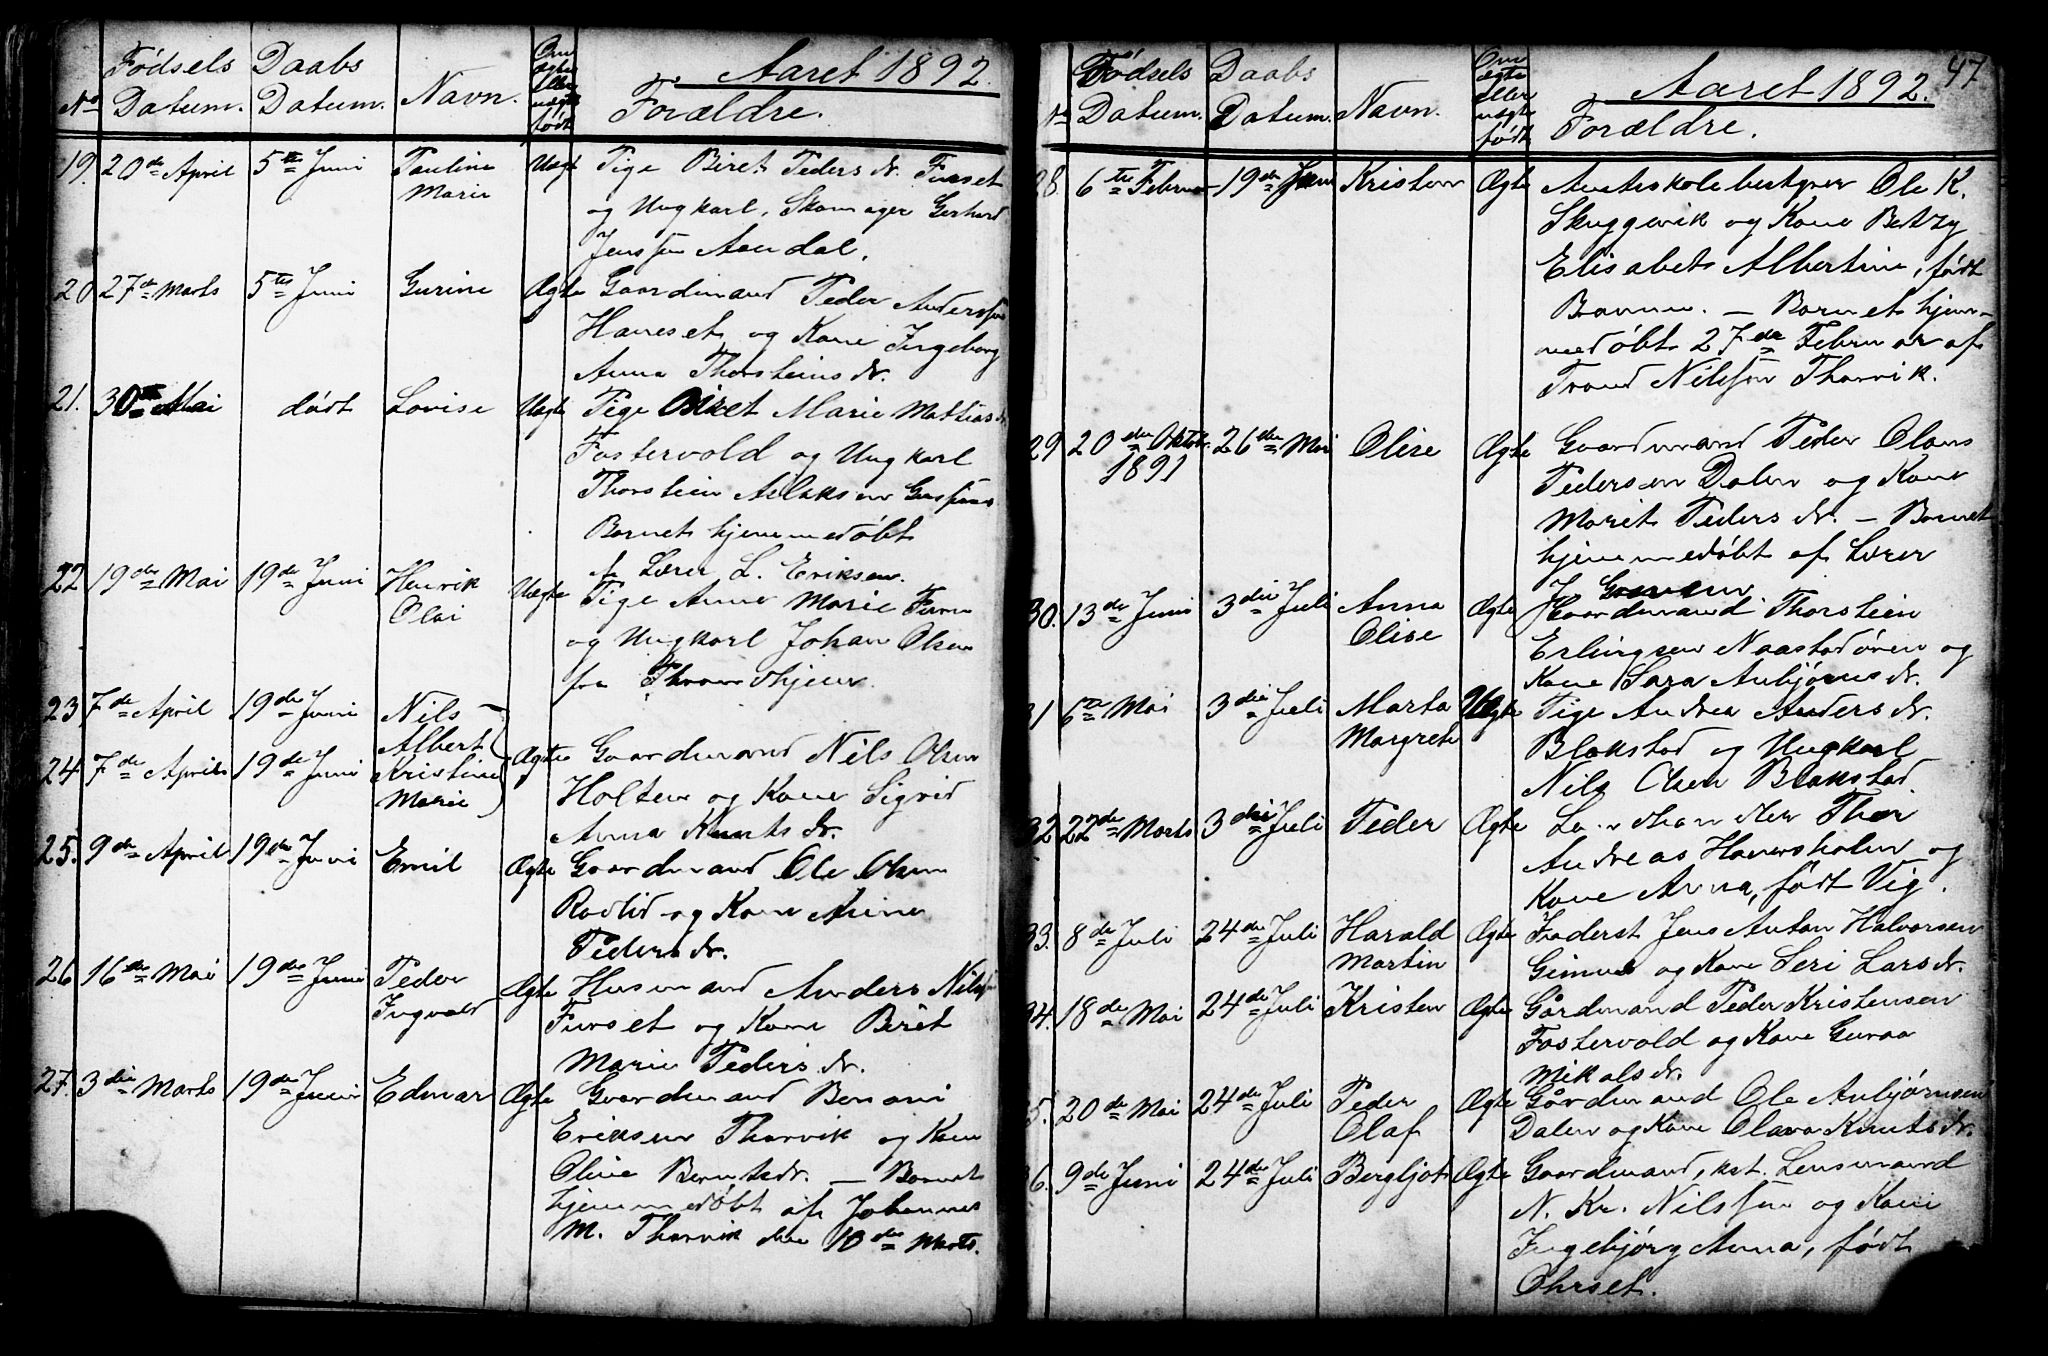 Aaret 1892.
No Fødsels Datum. Daabs Datum. Navn. Om ægte eller uægte født Forældre.
19. 20de April 5te Juni Pauline Uægt Pige Biret Peders dr. Furset
Marie og Ungkarl, Skomager Gerhard
Jenssen Aandal.
20 27de Marts 5te Juni Gurine Ægte Gaardmand Peder Anderssen
Haneset og Kone Ingeborg
Anna Thorsteins dr.
21. 30te Mai dødt Lovise Uægte Pige Biret Marie Mattias dr
Fostervold og Ungkarl
Thorstein Aslaksen
Barnet hjemmedøbt
af Lærer L. Eriksen.
22 19de Mai 19de Juni Henrik Uægte Pige Anne Marie
Olai og Ungkarl Johan Olsen
fra Throndhjem.
23 7de April 19de Juni Nils
Albert
24 7de April 19de Juni Kristine Ægte Gaardmand Nils Olsen
Marie Holten og Kone Sigrid
Anna Knuts dr.
25. 9de April 19de Juni Emil Ægte Gaardmand Ole Olsen
Rødlid og Kone Anne
Peders dr.
26 16de Mai 19de Juni Peder Ægte Husmand Anders Nilssen
Ingvald Furset og Kone Beret
Marie Peders dr.
27. 3die Marts 19de Juni Edmar Ægte Gaardmand Benoni
Eriksen Tharvik og Kone
Oline Berntsdr. — Barnet
hjemmedøbt af Johannes
M. Tharvik den 10de Marts.
47
Aaret 1892.
No Fødsels Datum. Daabs Datum. Navn. Om ægte eller uægte født Forældre.
28. 6te Februar 19de Juni Kristen Ægte Amtskolebestyrer Ole K.
Skuggevik og Kone Betzy
Elisabet Albertine, født
Barnet hjem-
medøbt 27de Februar af
Trond Nilssen Tharvik.
29 20de Oktbr. 1891 26de Mai Olise Ægte Gaardmand Peder Olaus
Pedersen Dalen og Kone
Marit Peders dr. — Barnet
hjemmedøbt af Lærer
J.
30. 13de Juni 3die Juli Anna Ægte Gaardmand Thorstein
Olise Erlingsen Naastadøren og
Kone Sara Anbjørns dr.
31 6te Mai 3die Juli Marta Uægte Pige Andrea Anders dr.
Margrete Blakstad og Ungkarl
Nils Olsen Blakstad.
32 22de Marts 3die Juli Peder Ægte Landhandler Thor
Andreas Haversholm og
Kone Anna, født Vig.
33. 8de Juli 24de Juli Harald Ægte Inderst Jens Anton Halvorsen
Martin Gimnes og Kone Seri Lars dr.
34. 18de Mai 24de Juli Kristen Ægte Gårdmand Peder Kristensen
Fostervold og Kone Guraa
Mikals dr.
35. 20de Mai 24de Juli Peder Ægte Gårdmand Ole Anbjørnsen
Olaf Dalen og Kone Olava Knuts dr.
36. 9de Juni 24de Juli Bergljot Ægte Gaardmand, kst. Lensmand
N. Kr. Nilssen og Kone
Ingebjørg Anna, født
Ohrset.